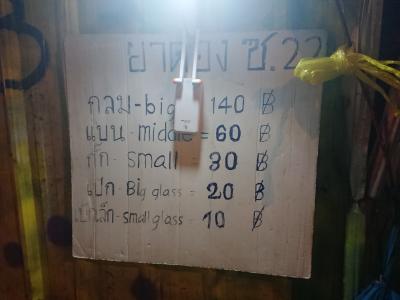 ยาดอง ซ.22
กลม-big 140 ฿
แบน-middle = 60 ฿
กั๊ก-small 30 ฿
เป๊ก-Big glass = 20 ฿
เป๊กเล็ก-small glass = 10 ฿